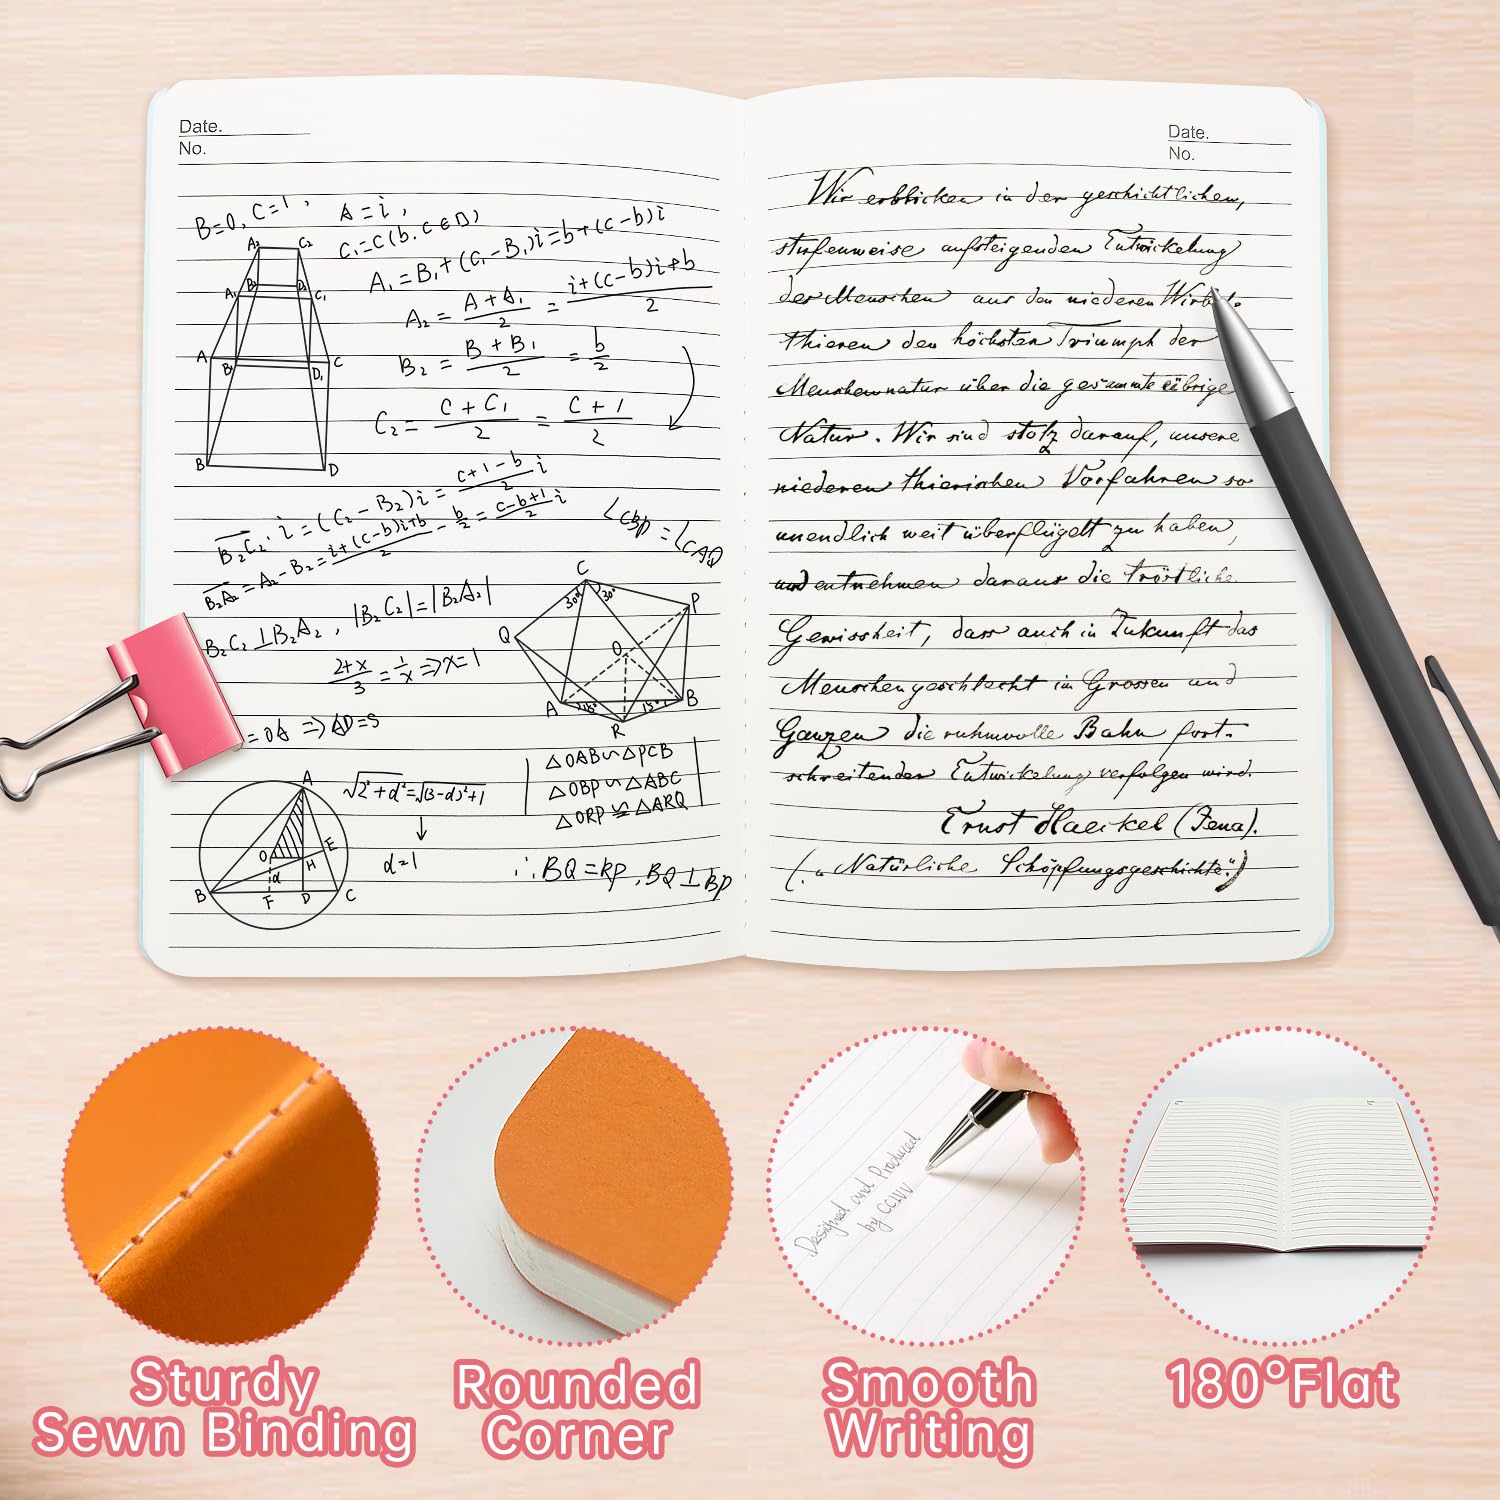 Date.
No.
B=0, C=1, A=i,
C₁=C(b.c∈D)
A₁=B₁+(C₁-B₁)i=b+(c-b)i
A₂ = (A+A₁)/2 = (i+(c-b)i+b)/2
B₂ = (B+B₁)/2 = b/2
C₂= (C+C₁)/2 = (C+1)/2
A₂ C₂
B₂ D₂
A₁ C₁
A C
B₁ D₁
B D
B₂C₂·i=(C₂-B₂)i= (c+1-b)/2 i
B₂A₂=A₂-B₂= (i+(c-b)i+b)/2 - b/2 = (c-b+1)/2 i
∠CBP=∠CAQ
B₂C₂⊥B₂A₂, |B₂C₂|=|B₂A₂|
(2+x)/3 = 1/x ⇒x=1
C
30° 30°
P
Q
O
A B
15°
R
=OA ⇒AD=5
△OAB∽△PCB
△OBP∽△ABC
△ORP≌△ARQ
A
√2²+d²=√(3-d)²+1
O E
H
d
B F D C
d=1
∴BQ=RP, BQ⊥BP
Date.
No.
Wir erblicken in der geschichtlichen,
stufenweise aufsteigenden Entwickelung
der Menschen aus den niederen
thieren den höchsten Triumph der
Menschennatur über die gesammte übrige
Natur. Wir sind stolz darauf, unsere
niederen thierischen Vorfahren so
unendlich weit überflügelt zu haben,
und entnehmen daraus die tröstliche
Gewissheit, dass auch in Zukunft das
Menschengeschlecht im Grossen und
Ganzen die ruhmvolle Bahn fort-
schreitender Entwickelung verfolgen wird.
Ernst Haeckel (Jena).
(„Natürliche Schöpfungsgeschichte.")
Designed and Produced
by CCIVV
Sturdy
Sewn Binding
Rounded
Corner
Smooth
Writing
180°Flat